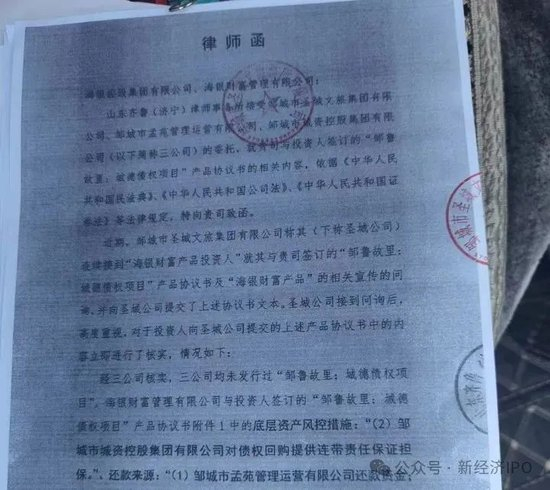 律师函
海银控股集团有限公司、海银财富管理有限公司：
山东齐鲁（济宁）律师事务所接受邹城市圣城文旅集团有限
公司、邹城市孟苑管理运营有限公司、邹城市城资控股集团有限
公司（以下简称三公司）的委托，就贵司与投资人签订的“邹鲁
故里：诚德债权项目”产品协议书的相关内容，依据《中华人民
共和国民法典》、《中华人民共和国公司法》、《中华人民共和国证
券法》等法律规定，特向贵司致函。
近期，邹城市圣城文旅集团有限公司称其（下称圣城公司）
连续接到“海银财富产品投资人”就其与贵司签订的“邹鲁故里：
诚德债权项目”产品协议书及“海银财富产品”的相关宣传的问
询，并向圣城公司提交了上述协议书文本。圣城公司接到问询后，
高度重视，对于投资人向圣城公司提交的上述产品协议书中的内
容立即进行了核实，情况如下：
经三公司核实，三公司均未发行过“邹鲁故里：诚德债权项
目”。海银财富管理有限公司与投资人签订的“邹鲁故里：诚德
债权项目”产品协议书附件1中的底层资产风控措施：“（2）邹
城市城资控股集团有限公司对债权回购提供连带责任保证担
保。”、还款来源：“（1）邹城市孟苑管理运营有限公司还款资金；
公众号·新经济IPO